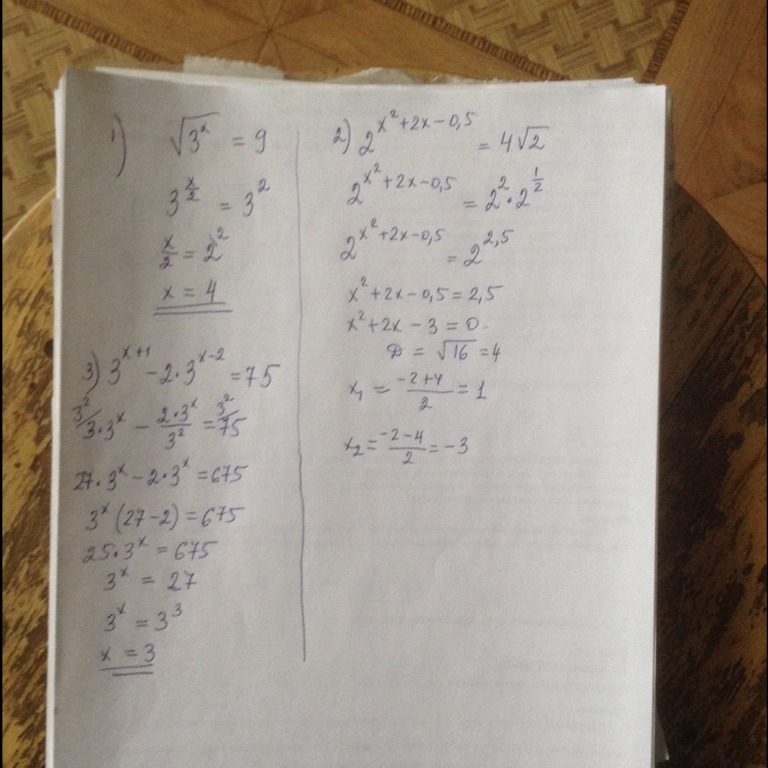 1) √3^x = 9
3^(x/2) = 3^2
x/2 = 2^2
x = 4
3) 3^(x+1) - 2·3^(x-2) = 75
3^2/ 3·3^x - (2·3^x)/3^2 = 3^2/ 75
27·3^x - 2·3^x = 675
3^x (27-2) = 675
25·3^x = 675
3^x = 27
3^x = 3^3
x = 3
2) 2^(x^2+2x-0,5) = 4√2
2^(x^2+2x-0,5) = 2^2·2^(1/2)
2^(x^2+2x-0,5) = 2^(2,5)
x^2+2x-0,5 = 2,5
x^2+2x-3 = 0.
D = √16 = 4
x₁ = (-2+4)/2 = 1
x₂ = (-2-4)/2 = -3